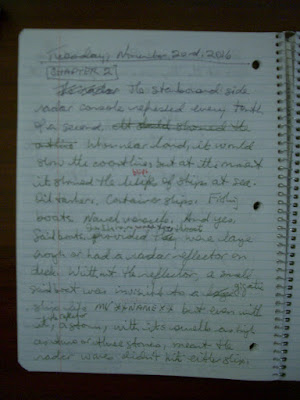 Tuesday, November 22nd, 2016
CHAPTER 2
The starboard side
radar console refreshed every tenth
of a second.
When near land, it would
show the coastline but at the moment
it showed the blips of ships at sea.
Oil tankers. Container ships. Fishing
boats. Naval vessels. And yes,
Sailboats provided they were large
enough or had a radar reflector on
deck. Without the reflector, a small
sailboat was invisible to a gigantic
ship like MV **NAME** but even with
it, a storm, with its swells as high
as two or three stories, meant the
radar waves didn't hit either ship.